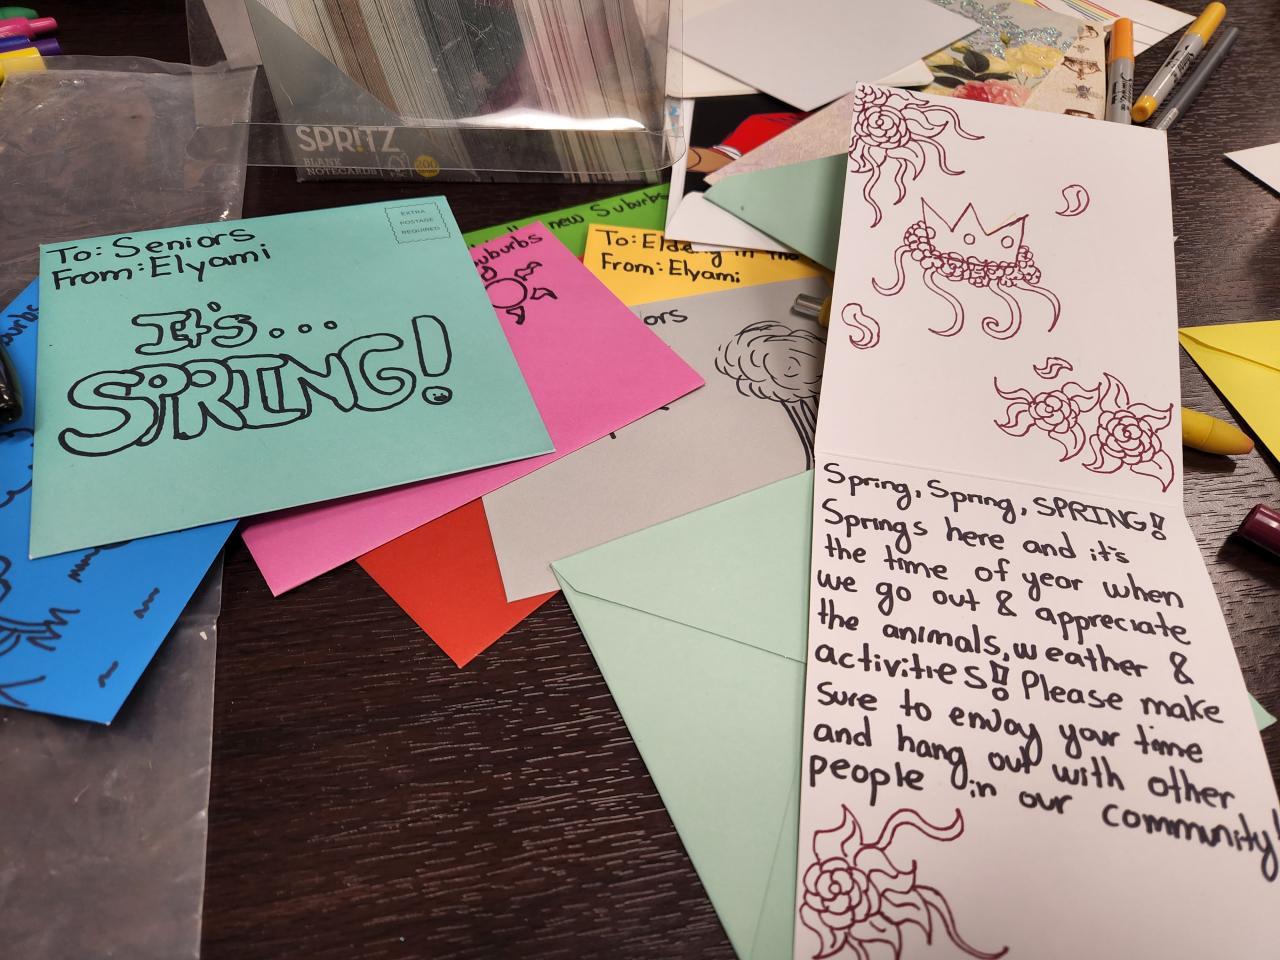 SPRITZ
BLANK
NOTECARDS
200
To: Seniors
From: Elyami
EXTRA
POSTAGE
REQUIRED
It's...
SPRING!
new Suburbs
uburbs
To: Elderly in the
From: Elyami
ors
urbs
Spring, Spring, SPRING!
Springs here and it's
the time of year when
we go out & appreciate
the animals, weather &
activities! Please make
sure to enjoy your time
and hang out with other
people in our community!